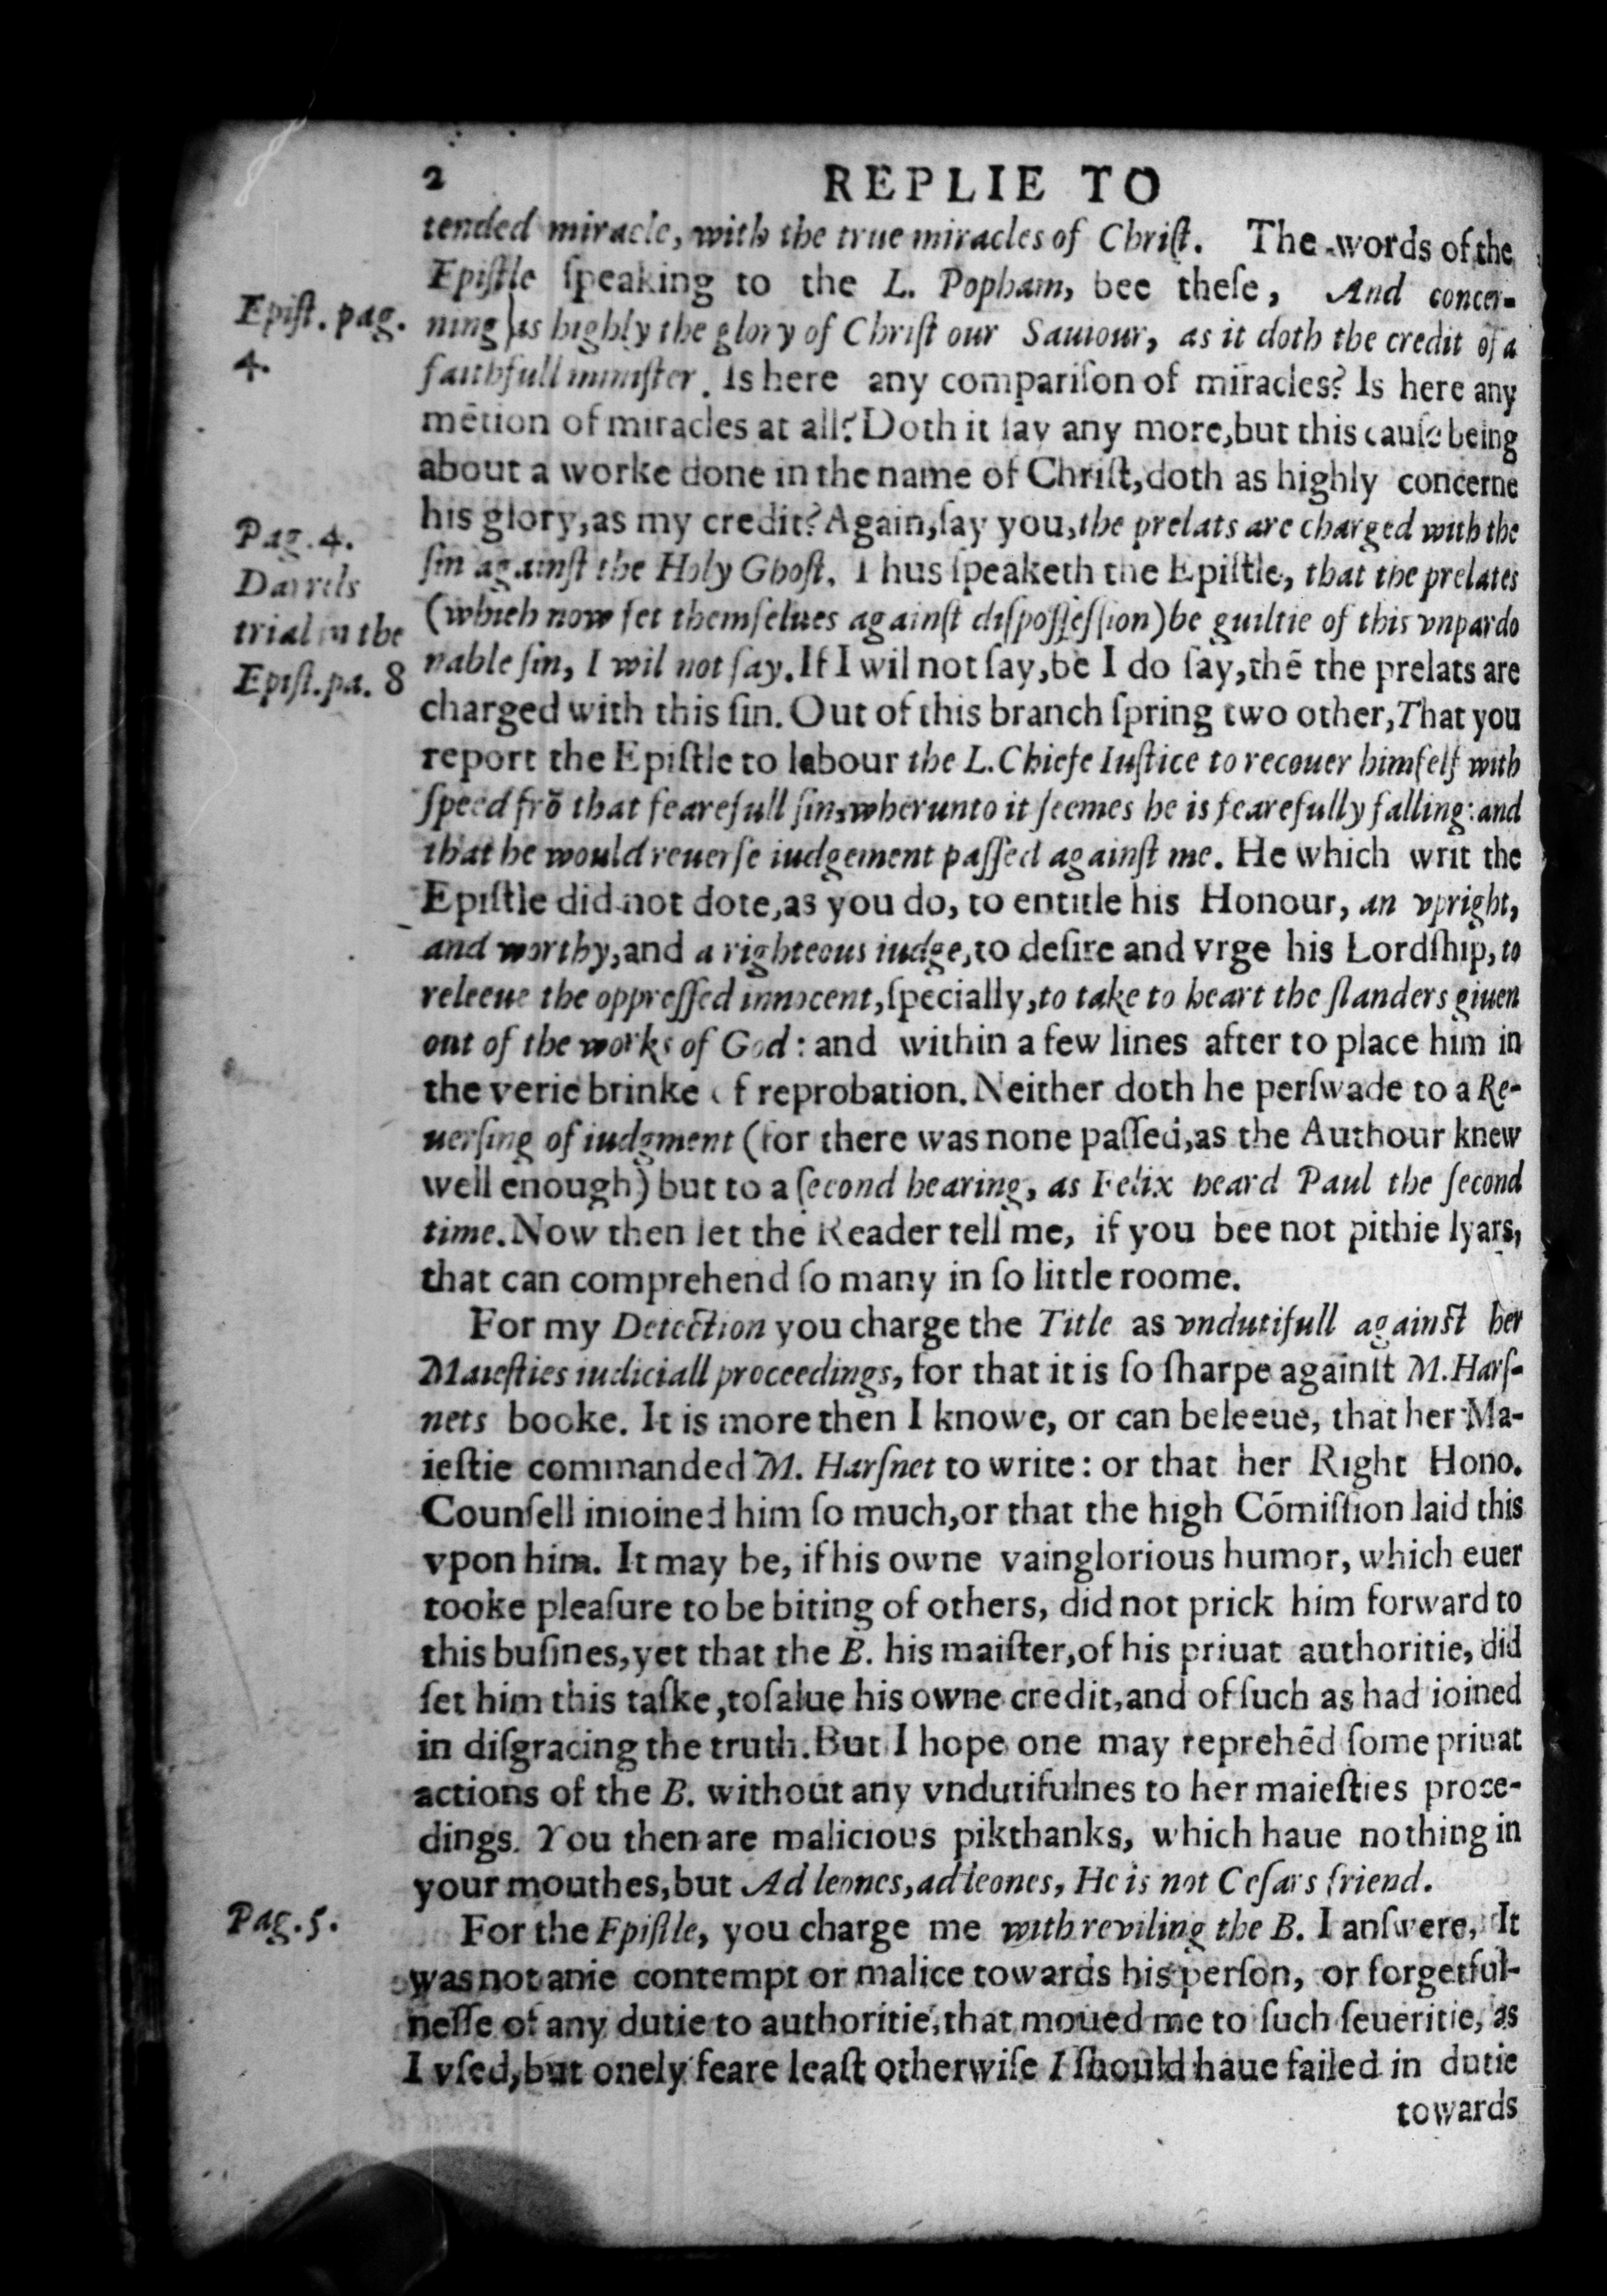 2 REPLIE TO
tended miracle, with the true miracles of Chriſt. The words of the
Epiſtle ſpeaking to the L. Popham, bee theſe, And concer-
Epiſt. pag.
4.
ning as highly the glory of Chriſt our Sauiour, as it doth the credit of a
faithfull miniſter. Is here any compariſon of miracles? Is here any
mẽtion of miracles at all? Doth it ſay any more, but this cauſe being
about a worke done in the name of Chriſt, doth as highly concerne
his glory, as my credit? Again, ſay you, the prelats are charged with the
Pag. 4.
Darrels
trial in the
Epiſt. pa. 8
ſin againſt the Holy Ghoſt. Thus ſpeaketh the Epiſtle, that the prelates
(which now ſet themſelues againſt diſpoſſeſſion) be guiltie of this vnpardo
nable ſin, I wil not ſay. If I wil not ſay, be I do ſay, thẽ the prelats are
charged with this ſin. Out of this branch ſpring two other, That you
report the Epiſtle to labour the L. Chiefe Iuſtice to recouer himſelf with
ſpeed frõ that fearefull ſin, wherunto it ſeemes he is fearefully falling: and
that he would reuerſe iudgement paſſed againſt me. He which writ the
Epiſtle did not dote, as you do, to entitle his Honour, an vpright,
and worthy, and a righteous iudge, to deſire and vrge his Lordſhip, to
releeue the oppreſſed innocent, ſpecially, to take to heart the ſlanders giuen
out of the works of God: and within a few lines after to place him in
the verie brinke of reprobation. Neither doth he perſwade to a Re-
uerſing of iudgment (for there was none paſſed, as the Authour knew
well enough) but to a ſecond hearing, as Felix heard Paul the ſecond
time. Now then let the Reader tell me, if you bee not pithie lyars,
that can comprehend ſo many in ſo little roome.
For my Detection you charge the Title as vndutifull againſt her
Maieſties iudiciall proceedings, for that it is ſo ſharpe againſt M. Harſ-
nets booke. It is more then I knowe, or can beleeue, that her Ma-
ieſtie commanded M. Harſnet to write: or that her Right Hono.
Counſell inioined him ſo much, or that the high Cõmiſſion laid this
vpon him. It may be, if his owne vainglorious humor, which euer
tooke pleaſure to be biting of others, did not prick him forward to
this buſines, yet that the B. his maiſter, of his priuat authoritie, did
ſet him this taſke, to ſalue his owne credit, and of ſuch as had ioined
in diſgracing the truth. But I hope one may reprehẽd ſome priuat
actions of the B. without any vndutifulnes to her maieſties proce-
dings. You then are malicious pikthanks, which haue nothing in
your mouthes, but Ad leones, ad leones, He is not Ceſars friend.
Pag. 5.
For the Epiſtle, you charge me with reviling the B. I anſwere, It
was not anie contempt or malice towards his perſon, or forgetful-
neſſe of any dutie to authoritie, that moued me to ſuch ſeueritie, as
I vſed, but onely feare leaſt otherwiſe I ſhould haue failed in dutie
towards